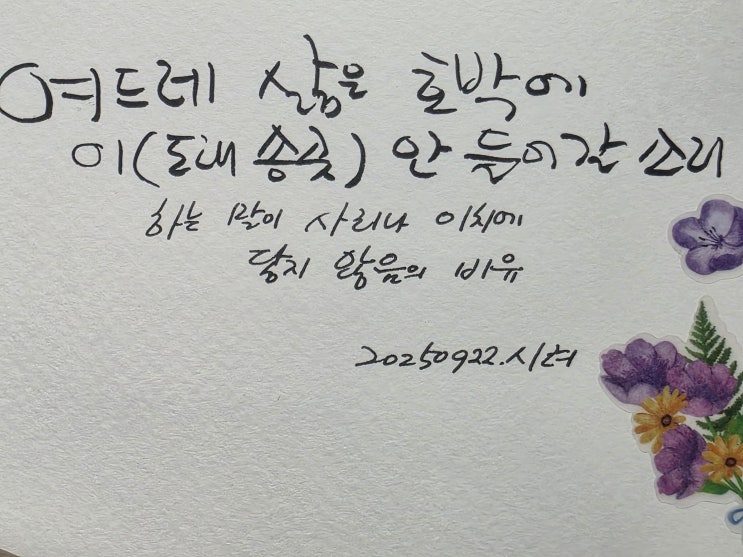 여드레 삶은 호박에
이(도래 송곳) 안 들어갈 소리
하는 말이 사리나 이치에
닿지 않음의 비유
20250922.시혀